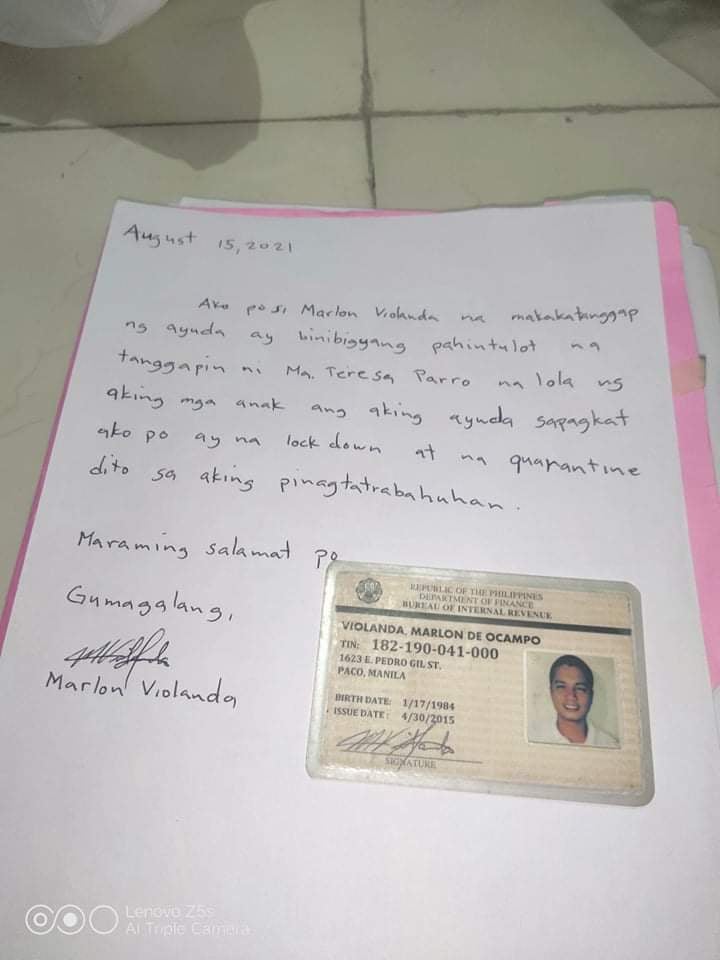 August 15, 2021
Ako po si Marlon Violanda na makakatanggap
ng ayuda ay binibigyang pahintulot na
tanggapin ni Ma. Teresa Parro na lola ng
aking mga anak ang aking ayuda sapagkat
ako po ay na lock down at na quarantine
dito sa aking pinagtatrabahuhan.
Maraming salamat po
Gumagalang,
Marlon Violanda
REPUBLIC OF THE PHILIPPINES
DEPARTMENT OF FINANCE
BUREAU OF INTERNAL REVENUE
VIOLANDA, MARLON DE OCAMPO
TIN: 182-190-041-000
1623 E. PEDRO GIL ST.
PACO, MANILA
BIRTH DATE: 1/17/1984
ISSUE DATE: 4/30/2015
SIGNATURE
Lenovo Z5s
AI Triple Camera